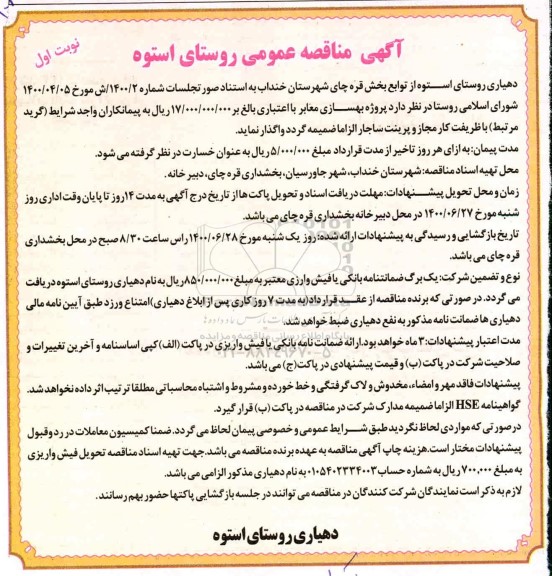 نوبت اول
آگهی مناقصه عمومی روستای استوه
دهیاری روستای استوه از توابع بخش قره چای شهرستان خنداب به استناد صورتجلسات شماره ۱۴۰۰/۲/ش مورخ ۱۴۰۰/۰۴/۰۵
شورای اسلامی روستا در نظر دارد پروژه بهسازی معابر با اعتباری بالغ بر ۱۷/۰۰۰/۰۰۰/۰۰۰ ریال به پیمانکاران واجد شرایط (گرید
مرتبط) با ظرفیت کار مجاز و پرینت ساجار الزاما ضمیمه گردد واگذار نماید.
مدت پیمان: به ازای هر روز تاخیر از مدت قرارداد مبلغ ۵/۰۰۰/۰۰۰ ریال به عنوان خسارت در نظر گرفته می شود.
محل تهیه اسناد مناقصه: شهرستان خنداب، شهر جاورسیان، بخشداری قره چای، دبیرخانه.
زمان و محل تحویل پیشنهادات: مهلت دریافت اسناد و تحویل پاکت ها از تاریخ درج آگهی به مدت ۱۴ روز تا پایان وقت اداری روز
شنبه مورخ ۱۴۰۰/۰۶/۲۷ در محل دبیرخانه بخشداری قره چای می باشد.
تاریخ بازگشایی و رسیدگی به پیشنهادات ارائه شده: روز یک شنبه مورخ ۱۴۰۰/۰۶/۲۸ راس ساعت ۸/۳۰ صبح در محل بخشداری
قره چای می باشد.
نوع و تضمین شرکت: یک برگ ضمانتنامه بانکی یا فیش وارزی معتبر به مبلغ ۸۵۰/۰۰۰/۰۰۰ ریال به نام دهیاری روستای استوه دریافت
می گردد. در صورتی که برنده مناقصه از عقد قرارداد (به مدت ۷ روز کاری پس از ابلاغ دهیاری) امتناع ورزد طبق آیین نامه مالی
دهیاری ها ضمانت نامه مذکور به نفع دهیاری ضبط خواهد شد.
مدت اعتبار پیشنهادات: ۳ ماه خواهد بود. ارائه ضمانت نامه بانکی یا فیش واریزی در پاکت (الف) کپی اساسنامه و آخرین تغییرات و
صلاحیت شرکت در پاکت (ب) و قیمت پیشنهادی در پاکت (ج) می باشد.
پیشنهادات فاقد مهر و امضاء، مخدوش و لاک گرفتگی و خط خورده و مشروط و اشتباه محاسباتی مطلقا ترتیب اثر داده نخواهد شد.
گواهینامه HSE الزاما ضمیمه مدارک شرکت در مناقصه در پاکت (ب) قرار گیرد.
در صورتی که مواردی لحاظ نگردید طبق شرایط عمومی و خصوصی پیمان لحاظ می گردد. ضمنا کمیسیون معاملات در رد و قبول
پیشنهادات مختار است. هزینه چاپ آگهی مناقصه به عهده برنده مناقصه می باشد. جهت تهیه اسناد مناقصه تحویل فیش واریزی
به مبلغ ۷۰۰,۰۰۰ ریال به شماره حساب ۰۱۰۵۴۰۲۳۳۴۰۰۳ به نام دهیاری مذکور الزامی می باشد.
لازم به ذکر است نمایندگان شرکت کنندگان در مناقصه می توانند در جلسه بازگشایی پاکتها حضور بهم رسانند.
دهیاری روستای استوه